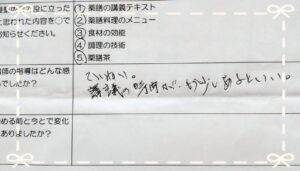 役に立った
と思われた内容を○で
お知らせください。
① 薬膳の講義テキスト
② 薬膳料理のメニュー
③ 食材の効能
④ 調理の技術
⑤ 薬膳茶
の指導はどんな感
でしたか?
ていねい。
講義の時間が、もう少しあるといい。
める前と今とで変化
ありましたか?